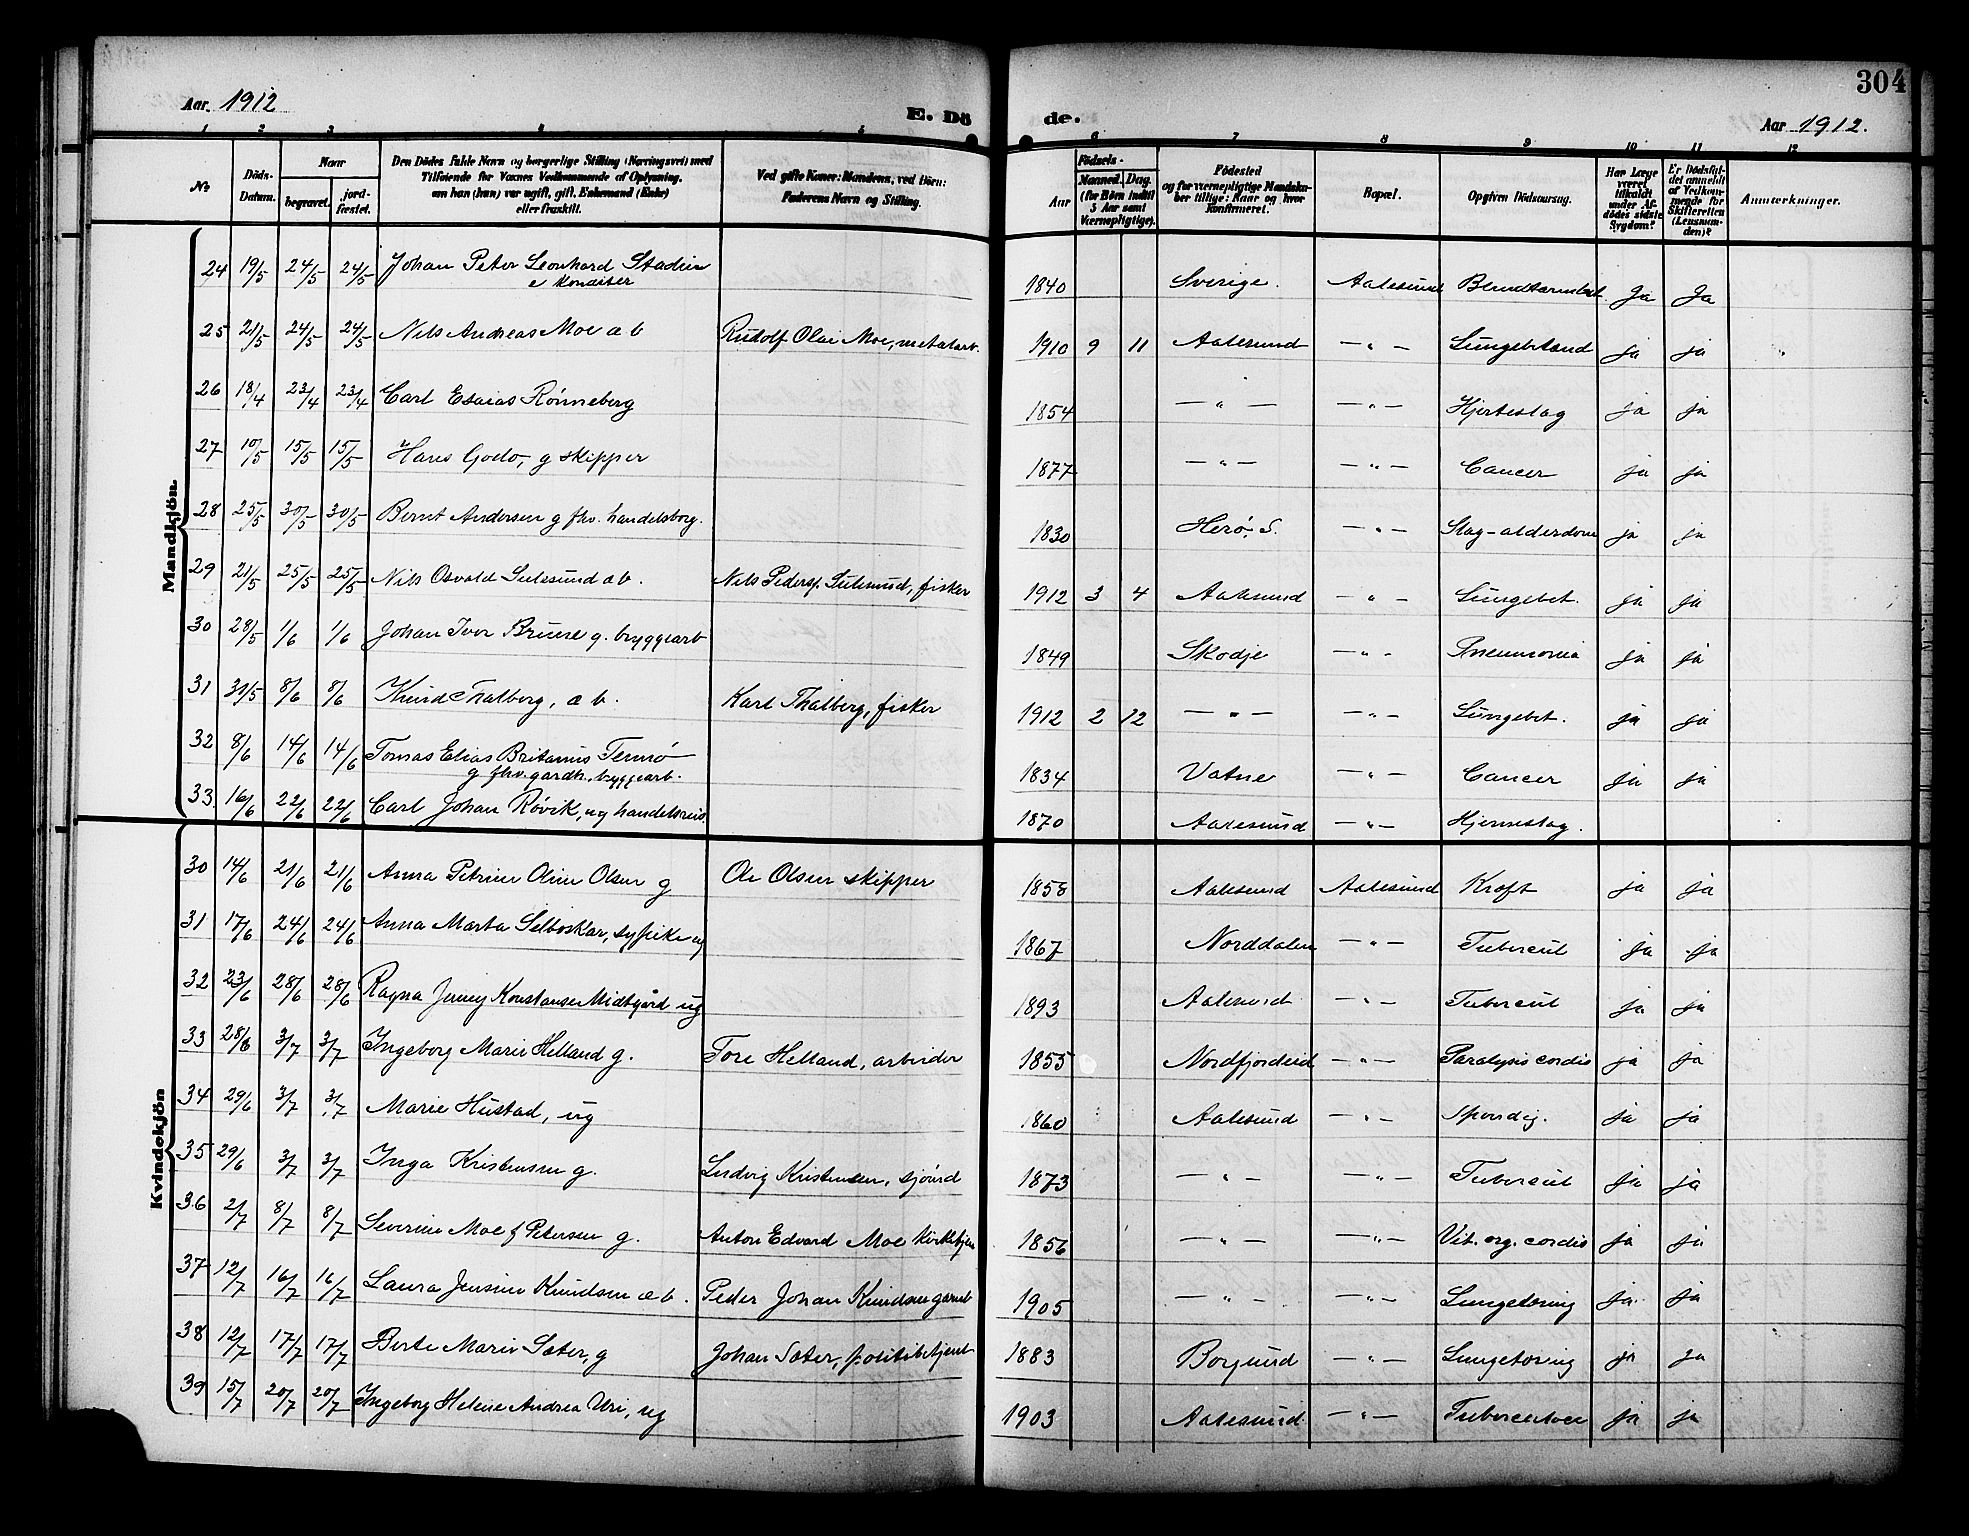 304
Aar 1912 E. Dö de. Aar 1912.
1 2 3 4 5 6 7 8 9 10 11 12
No
Döds-Datum.
Naar
begravet.
jord-fæstet.
Den Dödes fulde Navn og borgerlige Stilling (Næringsvei) med
Tilføiende for Voxnes Vedkommende af Oplysning,
om han (hun) var ugift, gift, Enkemand (Enke)
eller fraskilt.
Ved gifte Koner: Mandens, ved Börn:
Faderens Navn og Stilling.
Aar
Födsels-
Maaned. Dag.
(for Börn indtil
5 Aar samt
Værnepligtige).
Födested
og for værnepligtige Mandska-
ber tillige: Naar og hvor
konfirmeret.
Bopæl.
Opgiven Dödsaarsag.
Har Læge
været
tilkaldt
under Af-
dödes sidste
Sygdom?
Er Dödsfal-
det anmeldt
af Vedkom-
mende for
Skifteretten
(Lensman-
den)?
Anmærkninger.
Mandkjön.
24 19/5 24/5 24/5 Johan Peter Leonhard Stadin 1840 Sverige. Aalesund Ja Ja
e konditer
25 21/5 24/5 24/5 Nils Andreas Moe æ b Rudolf Olai Moe, metalarb. 1910 9 11 Aalesund — " — Lungebetænd ja ja
26 18/4 23/4 23/4 Carl Esaias Rönneberg 1854 — " — — " — Hjerteslag ja ja
27 10/5 15/5 15/5 Hans Godø, g skipper 1877 — " — — " — Cancer ja ja
28 25/5 30/5 30/5 Bernt Andersen g fhv. handelsborg. 1830 Herö, S. — " — Slag-alderdom ja ja
29 21/5 25/5 25/5 Nils Osvald Sulesund æ b. Nils Peders. Sulesund, fisker 1912 3 4 Aalesund — " — Lungebet. ja ja
30 28/5 1/6 1/6 Johan Iver Bruse g. bryggearb 1849 Skodje — " — Pneumonia ja ja
31 30/5 8/6 8/6 Knud Thalberg, æ b. Karl Thalberg, fisker 1912 2 12 — " — — " — Lungebet. ja ja
32 8/6 14/6 14/6 Tomas Elias Britanus 1834 Vatne — " — Cancer ja ja
g fhv. gardbr. bryggearb.
33 16/6 22/6 22/6 Carl Johan Rövik, ug handelsreis. 1870 Aalesund — " — Hjerneslag.
Kvindekjön
30 14/6 21/6 21/6 Anna Petrine Oline Olsen g Ole Olsen skipper 1858 Aalesund Aalesund Kræft ja ja
31 17/6 24/6 24/6 Anna Marta Selboskar, sypike ug 1867 Norddalen — " — Tubercul ja ja
32 23/6 28/6 28/6 Ragna Jenny Konstanse Midtgård ug 1893 Aalesund — " — Tubercul ja ja
33 28/6 3/7 3/7 Ingeborg Marie Helland g. Tore Helland, arbeider 1855 Nordfjordeid — " — Paralysis cordis ja ja
34 29/6 3/7 3/7 Marie Hustad, ug 1860 Aalesund — " — ja ja
35 29/6 3/7 3/7 Inga Kristensen g. Ludvig Kristensen, sjömd 1873 — " — — " — Tubercul ja ja
36 2/7 8/7 8/7 Severine Moe f Petersen g. Anton Edvard Moe kirketjen 1856 — " — — " — Vit. org. cordis ja ja
37 12/7 16/7 16/7 Laura Jensine Knudsen æ b. Peder Johan Knudsen 1905 — " — — " — Lungetæring ja ja
38 12/7 17/7 17/7 Berte Marie Sæter, g Johan Sæter, politibetjent 1883 Borgund — " — Lungetæring ja ja
39 15/7 20/7 20/7 Ingeborg Helene Andrea Uri, ug 1903 Aalesund — " — ja ja